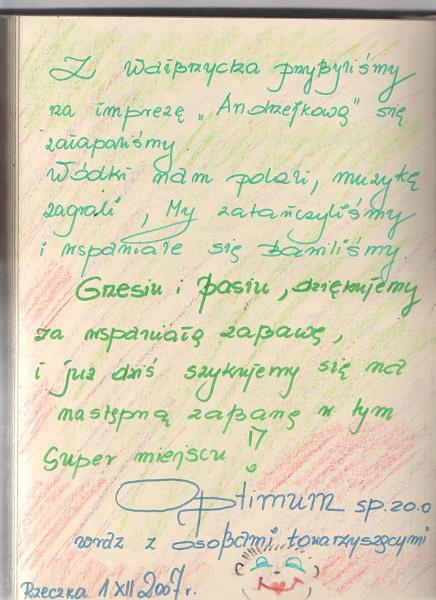 Z Wałbrzycha przybyliśmy
na imprezę „Andrzejkową" się
załapaliśmy
Wódki nam polali, muzykę
zagrali, My zatańczyliśmy
i wspaniale się bawiliśmy
Grzesiu i Basiu, dziękujemy
za wspaniałą zabawę,
i już dziś szykujemy się na
następną zabawę w tym
Super miejscu !?
Optimum sp.zo.o
wraz z osobami towarzyszącymi
Rzeczka 1 XII 2007r.